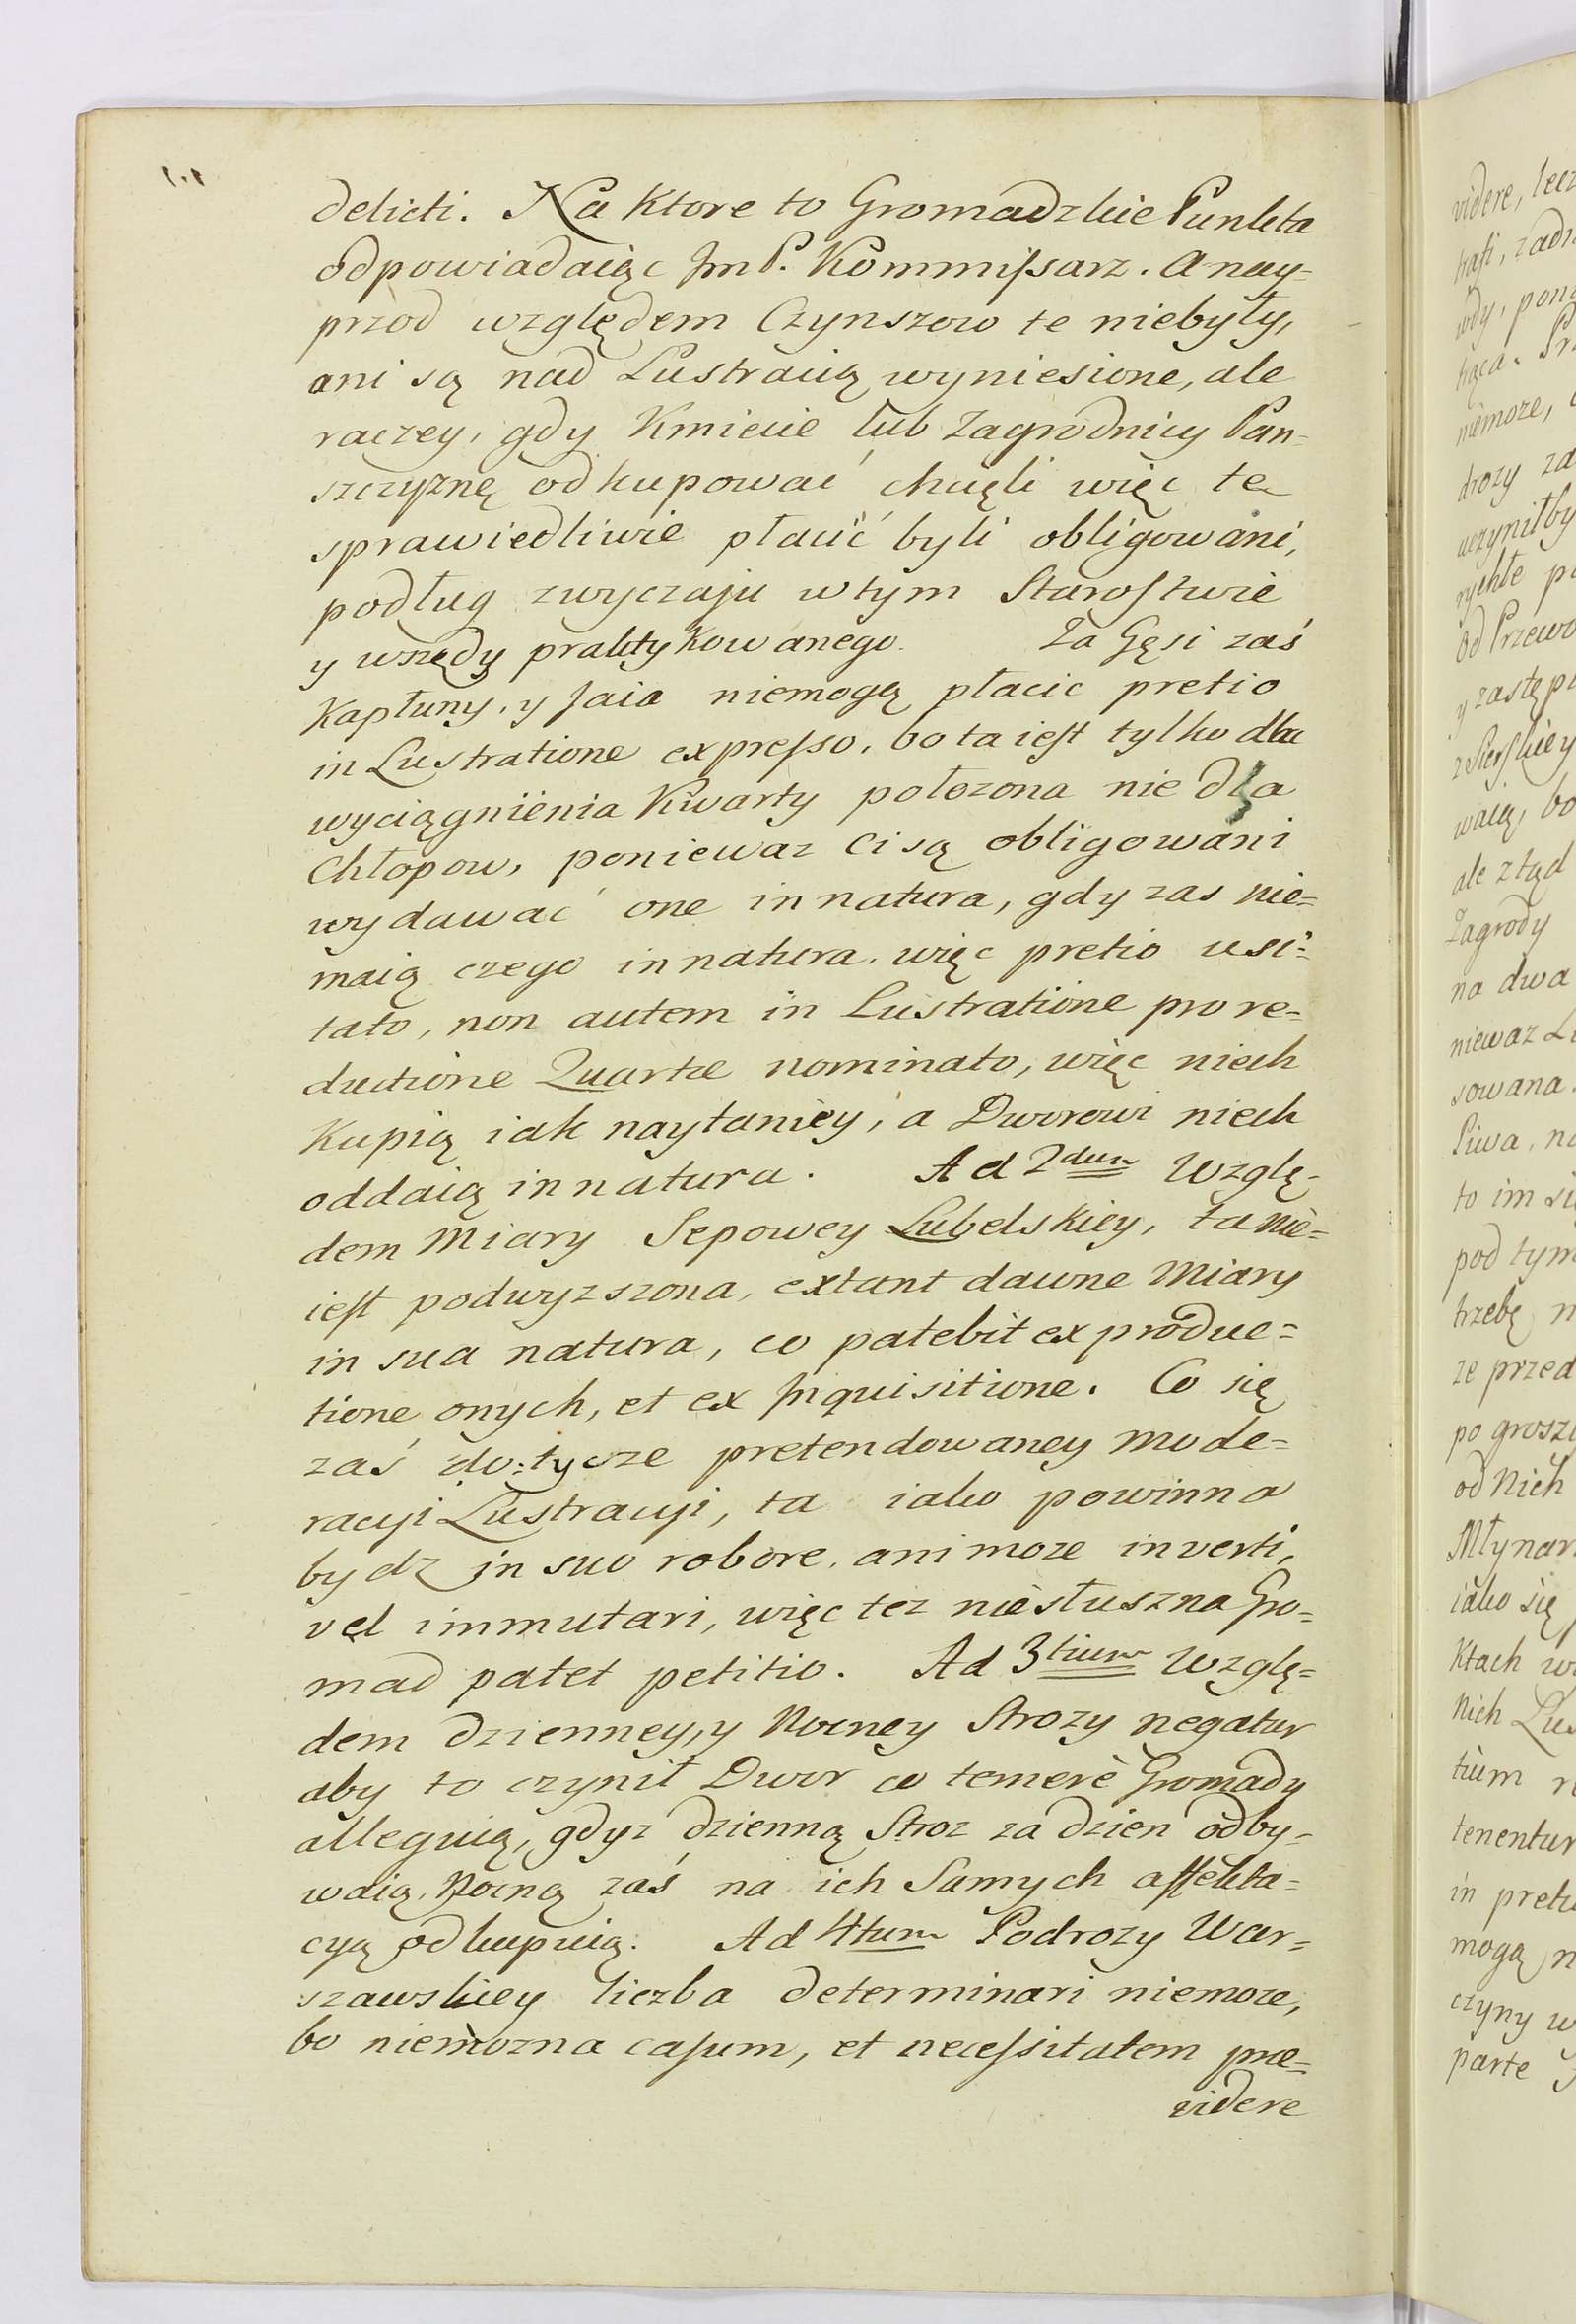 delicti. Na Ktore to Gromadzkie Punkta
odpowiadaiąc Jm P. Kommissarz. A nay-
przod względem Czynszow te niebyły,
ani są nad Lustracią wyniesione, ale
raczey, gdy Kmiecie lub Zagrodnicy Pan-
szczyznę odkupować chcieli więc te
sprawiedliwie płacić byli obligowani,
podług zwyczaju w tym Starostwie
y wszędy praktykowanego. Za Gęsi zaś
Kapłuny, y Jaia niemogą płacic pretio
in Lustratione expresso, bo ta iest tylko dla
wyciągnienia Kwarty położona nie dla
Chłopow, poniewaz ci są obligowani
wydawać one in natura, gdy zas nie=
maią czego in natura. więc pretio usi=
tato, non autem in Lustratione pro re=
ductione Quartæ nominato, więc niech
Kupią iak naytaniey, a Dworowi niech
oddaią in natura. Ad 2dum Wzglę-
dem Miary Sepowey Lubelskiey, ta nie=
iest podwyzszona, extant dawne Miary
in sua natura, co patebit ex produc=
tione onych, et ex Inquisitione. Co się
zaś do:tycze pretendowaney mode=
racyi Lustracyi, ta iako powinna
bydz in suo robore, ani moze inverti,
vel immutari, więc tez niesłuszna Gro=
mad patet petitio. Ad 3tium Wzglę=
dem dzienney, y Nocney Strozy negatur
aby to czynił Dwor co temerè Gromady
alleguią, gdyz dzienną Stroz za dzien odby-
waią, Nocną zaś na ich Samych affekta=
cyą odkupuią. Ad 4tum Podrozy War=
szawskiey liczba determinari niemoze,
bo niemozna casum, et necessitatem præ=
videre
videre, lecz
wdy, pon
niemoze,
drozy za
uczyniłby
rychłe p
Od Przewo
y zastęp
waią, bo
ale ztąd
Zagrody
na dwa
niewaz L
sowana.
Piwa, n
to im si
pod tym
trzebę n
ze przed
po grosz
od Nich
Młynar
iako się
Ktach w
Nich Lus
tium n
tenentur
in preti
mogą n
czyny w
parte